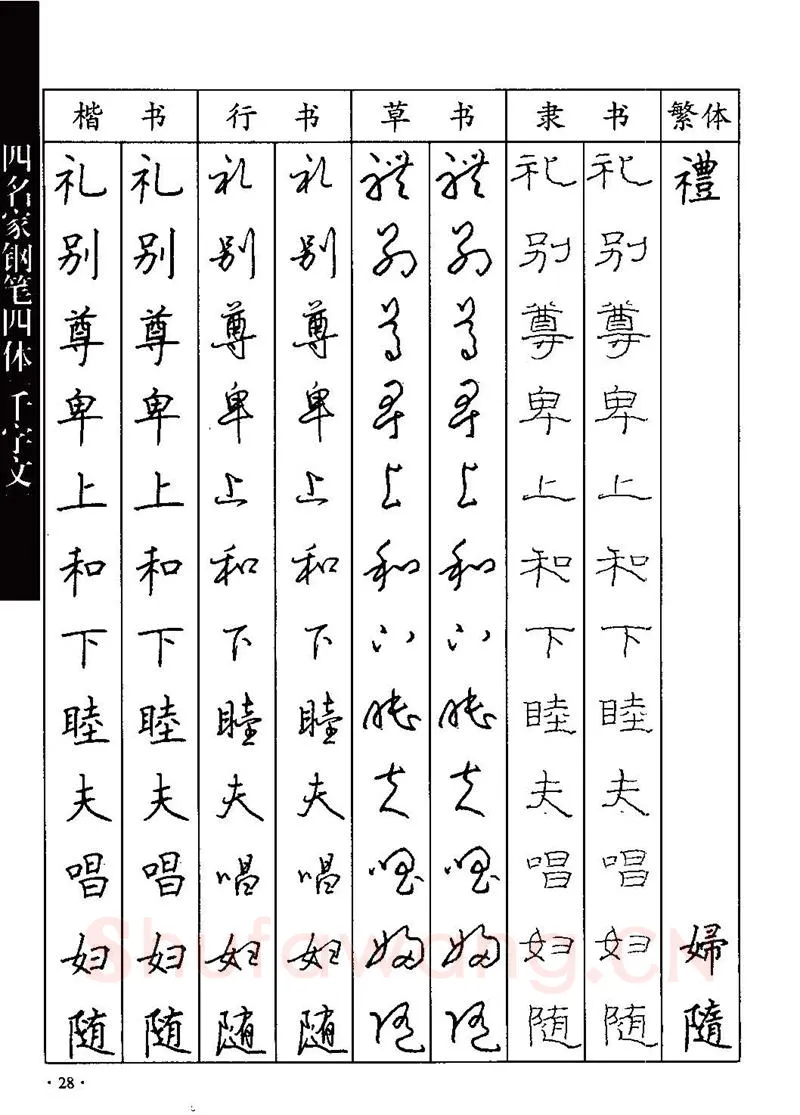 四名家钢笔四体《千字文》
楷书 行书 草书 隶书 繁体
礼 礼 礼 礼 禮 禮 礼 礼 禮
别 别 别 别 别 别 别 别
尊 尊 尊 尊 尊 尊 尊 尊
卑 卑 卑 卑 卑 卑 卑 卑
上 上 上 上 上 上 上 上
和 和 和 和 和 和 和 和
下 下 下 下 下 下 下 下
睦 睦 睦 睦 睦 睦 睦 睦
夫 夫 夫 夫 夫 夫 夫 夫
唱 唱 唱 唱 唱 唱 唱 唱
妇 妇 妇 妇 婦 婦 妇 妇 婦
随 随 随 随 随 随 随 随 隨
Shufawang.CN
·28·